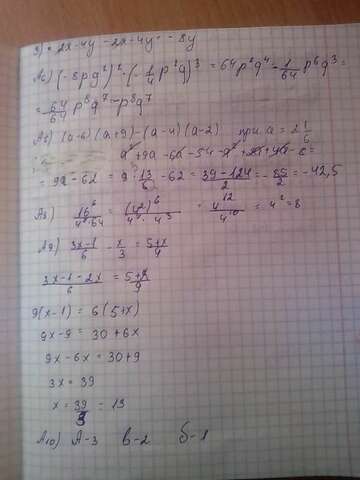 3) = 2x-4y -2x-4y = -8y
А6) (-8pq²)² · (-1/4 p²q)³ = 64p²q⁴ · 1/64 p⁶q³ =
= 64/64 p⁸q⁷ = p⁸q⁷
(a-6)(a+9)-(a-4)(a-2) при a = 2 1/6
= 9a - 62 = 9 · 13/6 - 62 = 39-124/2 = -85/2 = -42,5
А8) 16⁶/4⁷·64 = (4²)⁶/4⁷·4³ = 4¹²/4¹⁰ = 4² = 8
А9) 3x-1/6 - x/3 = 5+x/4
3x-1-2x/6 = 5+x/9
9(x-1) = 6(5+x)
9x-9 = 30+6x
9x-6x = 30+9
3x = 39
x = 39/3 = 13
А10) А-3 в-2 б-1